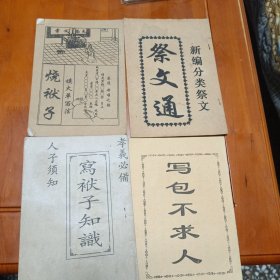 烧袱子
新编分类祭文
祭文通
孝義必備
寫袱子知識
人子须知
写包不求人